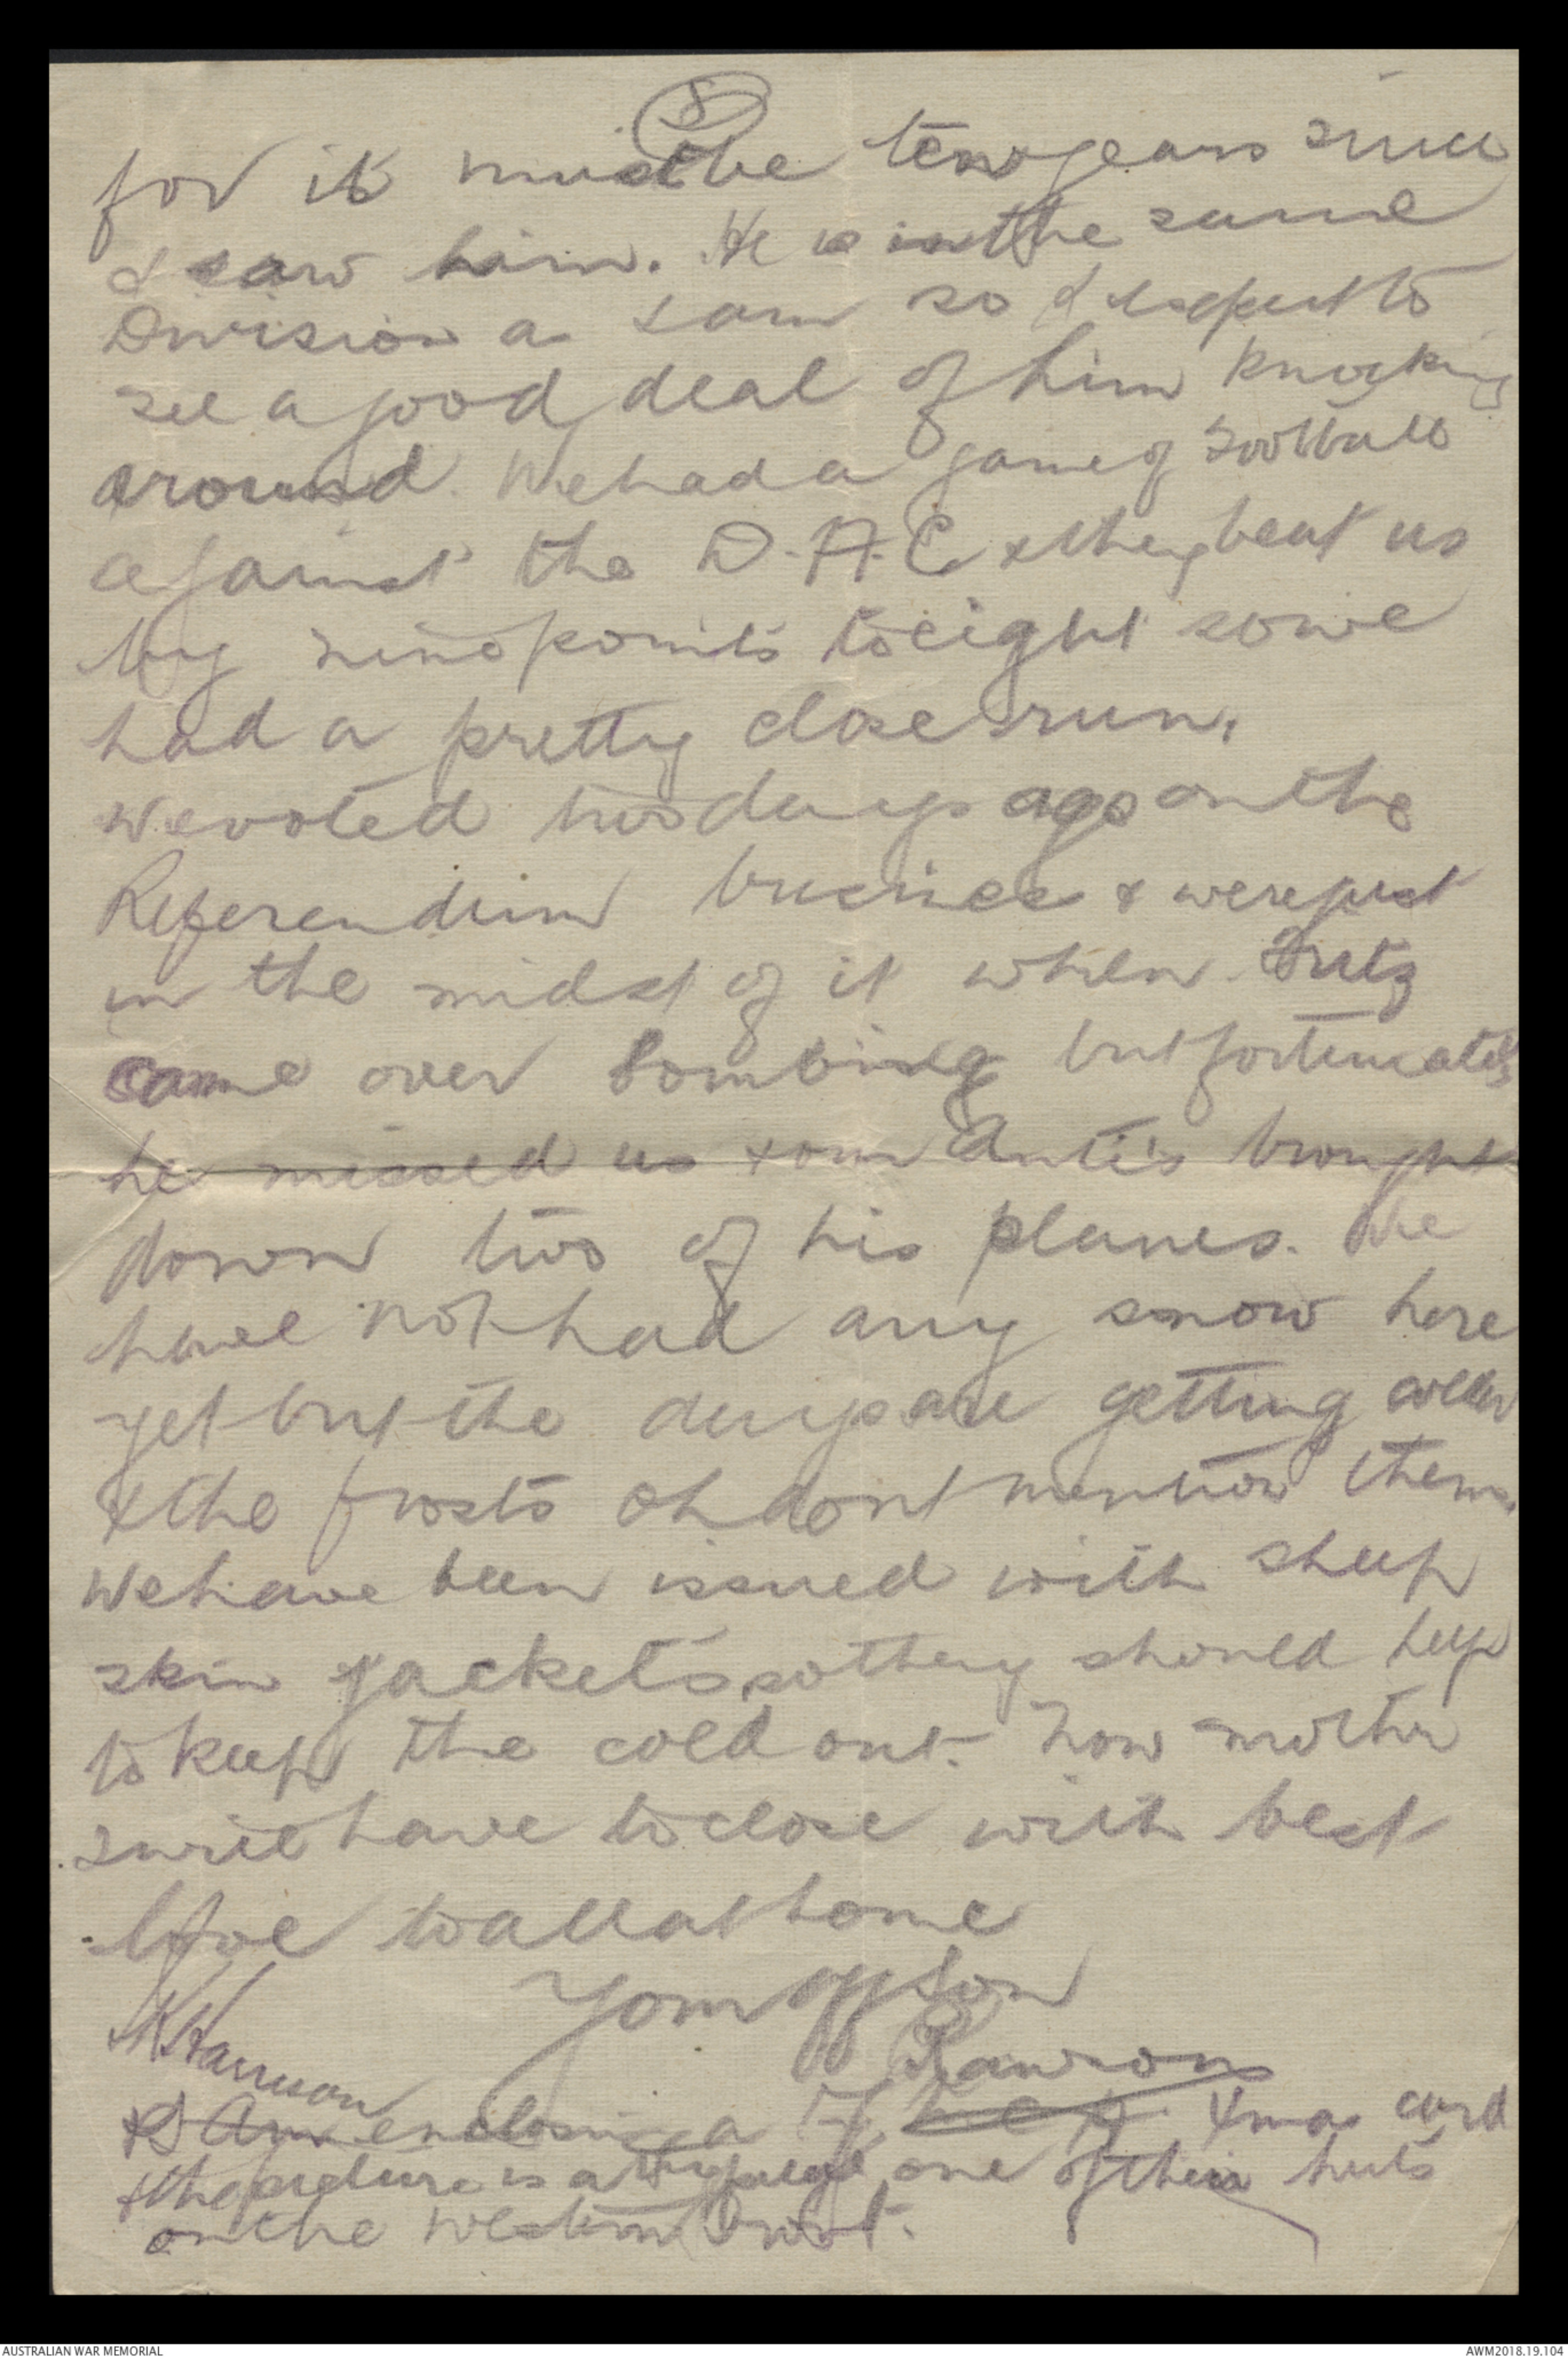 8
for it must be ten years since
I saw him. He is in the same
Division as I am so I expect to
see a good deal of him knocking
around. We had a game of football
against the D.A.C & they beat us
by nine points to eight so we
had a pretty close run.
We voted two days ago on the
Referendum business & were just
in the midst of it when Fritz
came over bombing but fortunately
he missed us & our Antis brought
down two of his planes. We
have not had any snow here
yet but the days are getting colder
& the frosts oh dont mention them.
We have been issued with sheep
skin jackets so they should help
to keep the cold out. Now mother
I will have to close with best
love to all at home
Your aff son
Rawson
Harrison
PS Am enclosing a Y Xmas card
& the picture is a typical one of their huts
on the Western Front.
AUSTRALIAN WAR MEMORIAL
AWM2018.19.104